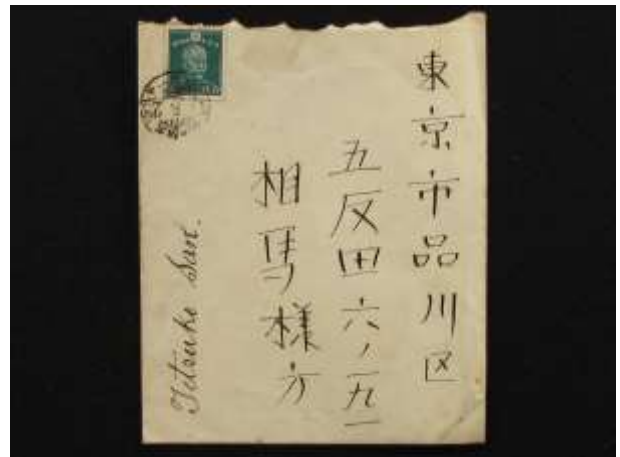 東京市品川区
五反田六ノ一九一
相馬様方
Titsuke San.